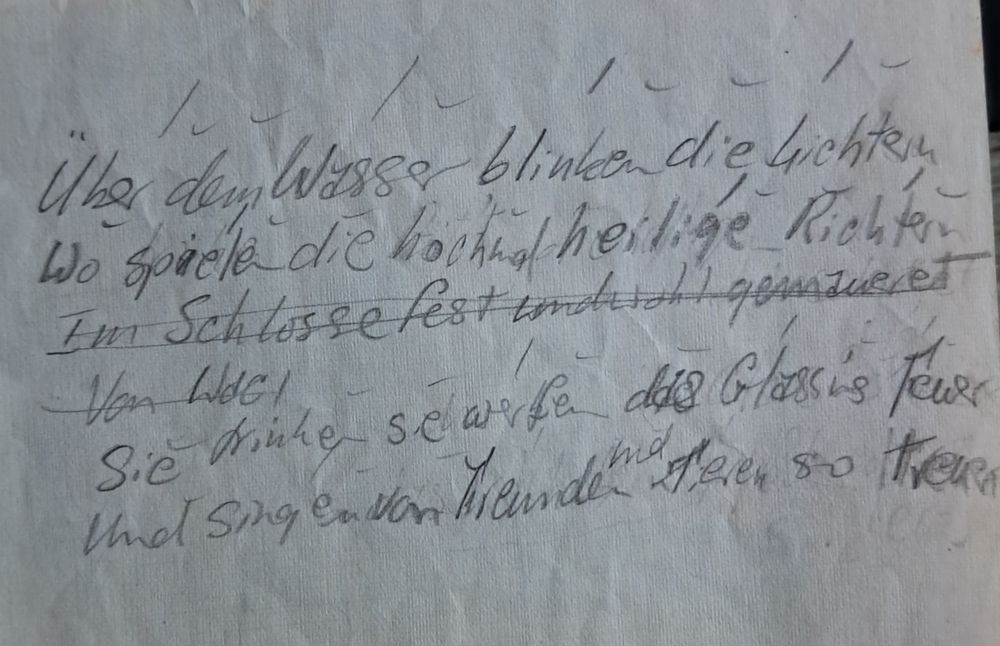 Über dem Wasser blinken die Lichtern
Wo spielen die hochnd heilige Richtern
Im Schlosse fest und gemaueret
Von
Sie trinken sie werfen das Glas ins Feuer
Und singen von Freunden und so treuen